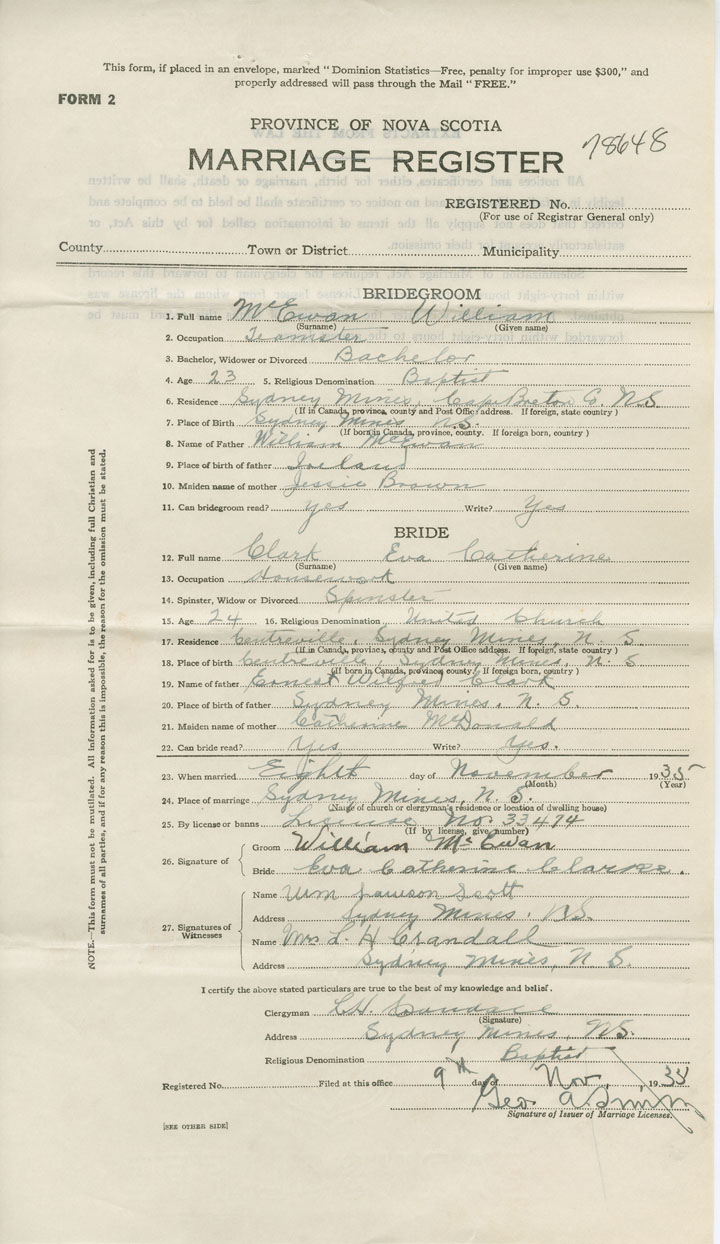 This form, if placed in an envelope, marked "Dominion Statistics—Free, penalty for improper use $300," and
properly addressed will pass through the Mail "FREE."
FORM 2
PROVINCE OF NOVA SCOTIA
78648
MARRIAGE REGISTER
REGISTERED No.
(For use of Registrar General only)
County Town or District Municipality
BRIDEGROOM
1. Full name McEwan William
(Surname) (Given name)
2. Occupation Teamster
3. Bachelor, Widower or Divorced Bachelor
4. Age 23 5. Religious Denomination Baptist
6. Residence Sydney Mines, Cape Breton Co. N.S.
(If in Canada, province, county and Post Office address. If foreign, state country)
7. Place of Birth Sydney Mines N.S.
(If born in Canada, province, county. If foreign born, country)
8. Name of Father William McEwan
9. Place of birth of father Ireland
10. Maiden name of mother Jessie Brown
11. Can bridegroom read? yes Write? Yes
BRIDE
12. Full name Clark Eva Catherine
(Surname) (Given name)
13. Occupation Housework
14. Spinster, Widow or Divorced Spinster
15. Age 24 16. Religious Denomination United Church
17. Residence Centreville, Sydney Mines, N. S
(If in Canada, province, county and Post Office address. If foreign, state country)
18. Place of birth Centreville, Sydney Mines, N. S
(If born in Canada, province county. If foreign born, country)
19. Name of father Ernest Wilfred Clark
20. Place of birth of father Sydney Mines, N. S.
21. Maiden name of mother Catherine McDonald
22. Can bride read? Yes Write? Yes.
23. When married Eight day of November 1935
(Month) (Year)
24. Place of marriage Sydney Mines, N. S.
(Name of church or clergyman's residence or location of dwelling house)
25. By license or banns License No. 33474
(If by license, give number)
26. Signature of
Groom William McEwan
Bride Eva Catherine Clarke.
27. Signatures of Witnesses
Name Wm Lawson Scott
Address Sydney Mines, N.S.
Name Mrs L. H Crandall
Address Sydney Mines, N S.
I certify the above stated particulars are true to the best of my knowledge and belief.
Clergyman L.H. Crandall
(Signature)
Address Sydney Mines, N.S.
Religious Denomination Baptist
Registered No. Filed at this office 9th day of Nov. 1935
Geo. A.
Signature of Issuer of Marriage Licenses.
[SEE OTHER SIDE]
NOTE.—This form must not be mutilated. All information asked for is to be given, including full Christian and
surnames of all parties, and if for any reason this is impossible, the reason for the omission must be stated.